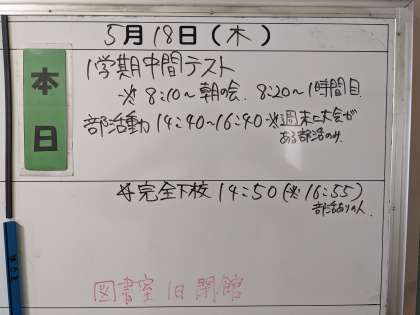 5月18日(木)
本日
1学期中間テスト
※8:10～朝の会. 8:20～1時間目
部活動 14:40～16:40 ※週末に大会が
ある部活のみ
完全下校 14:50(※16:55)
部活ありの人
図書室 1日 開館